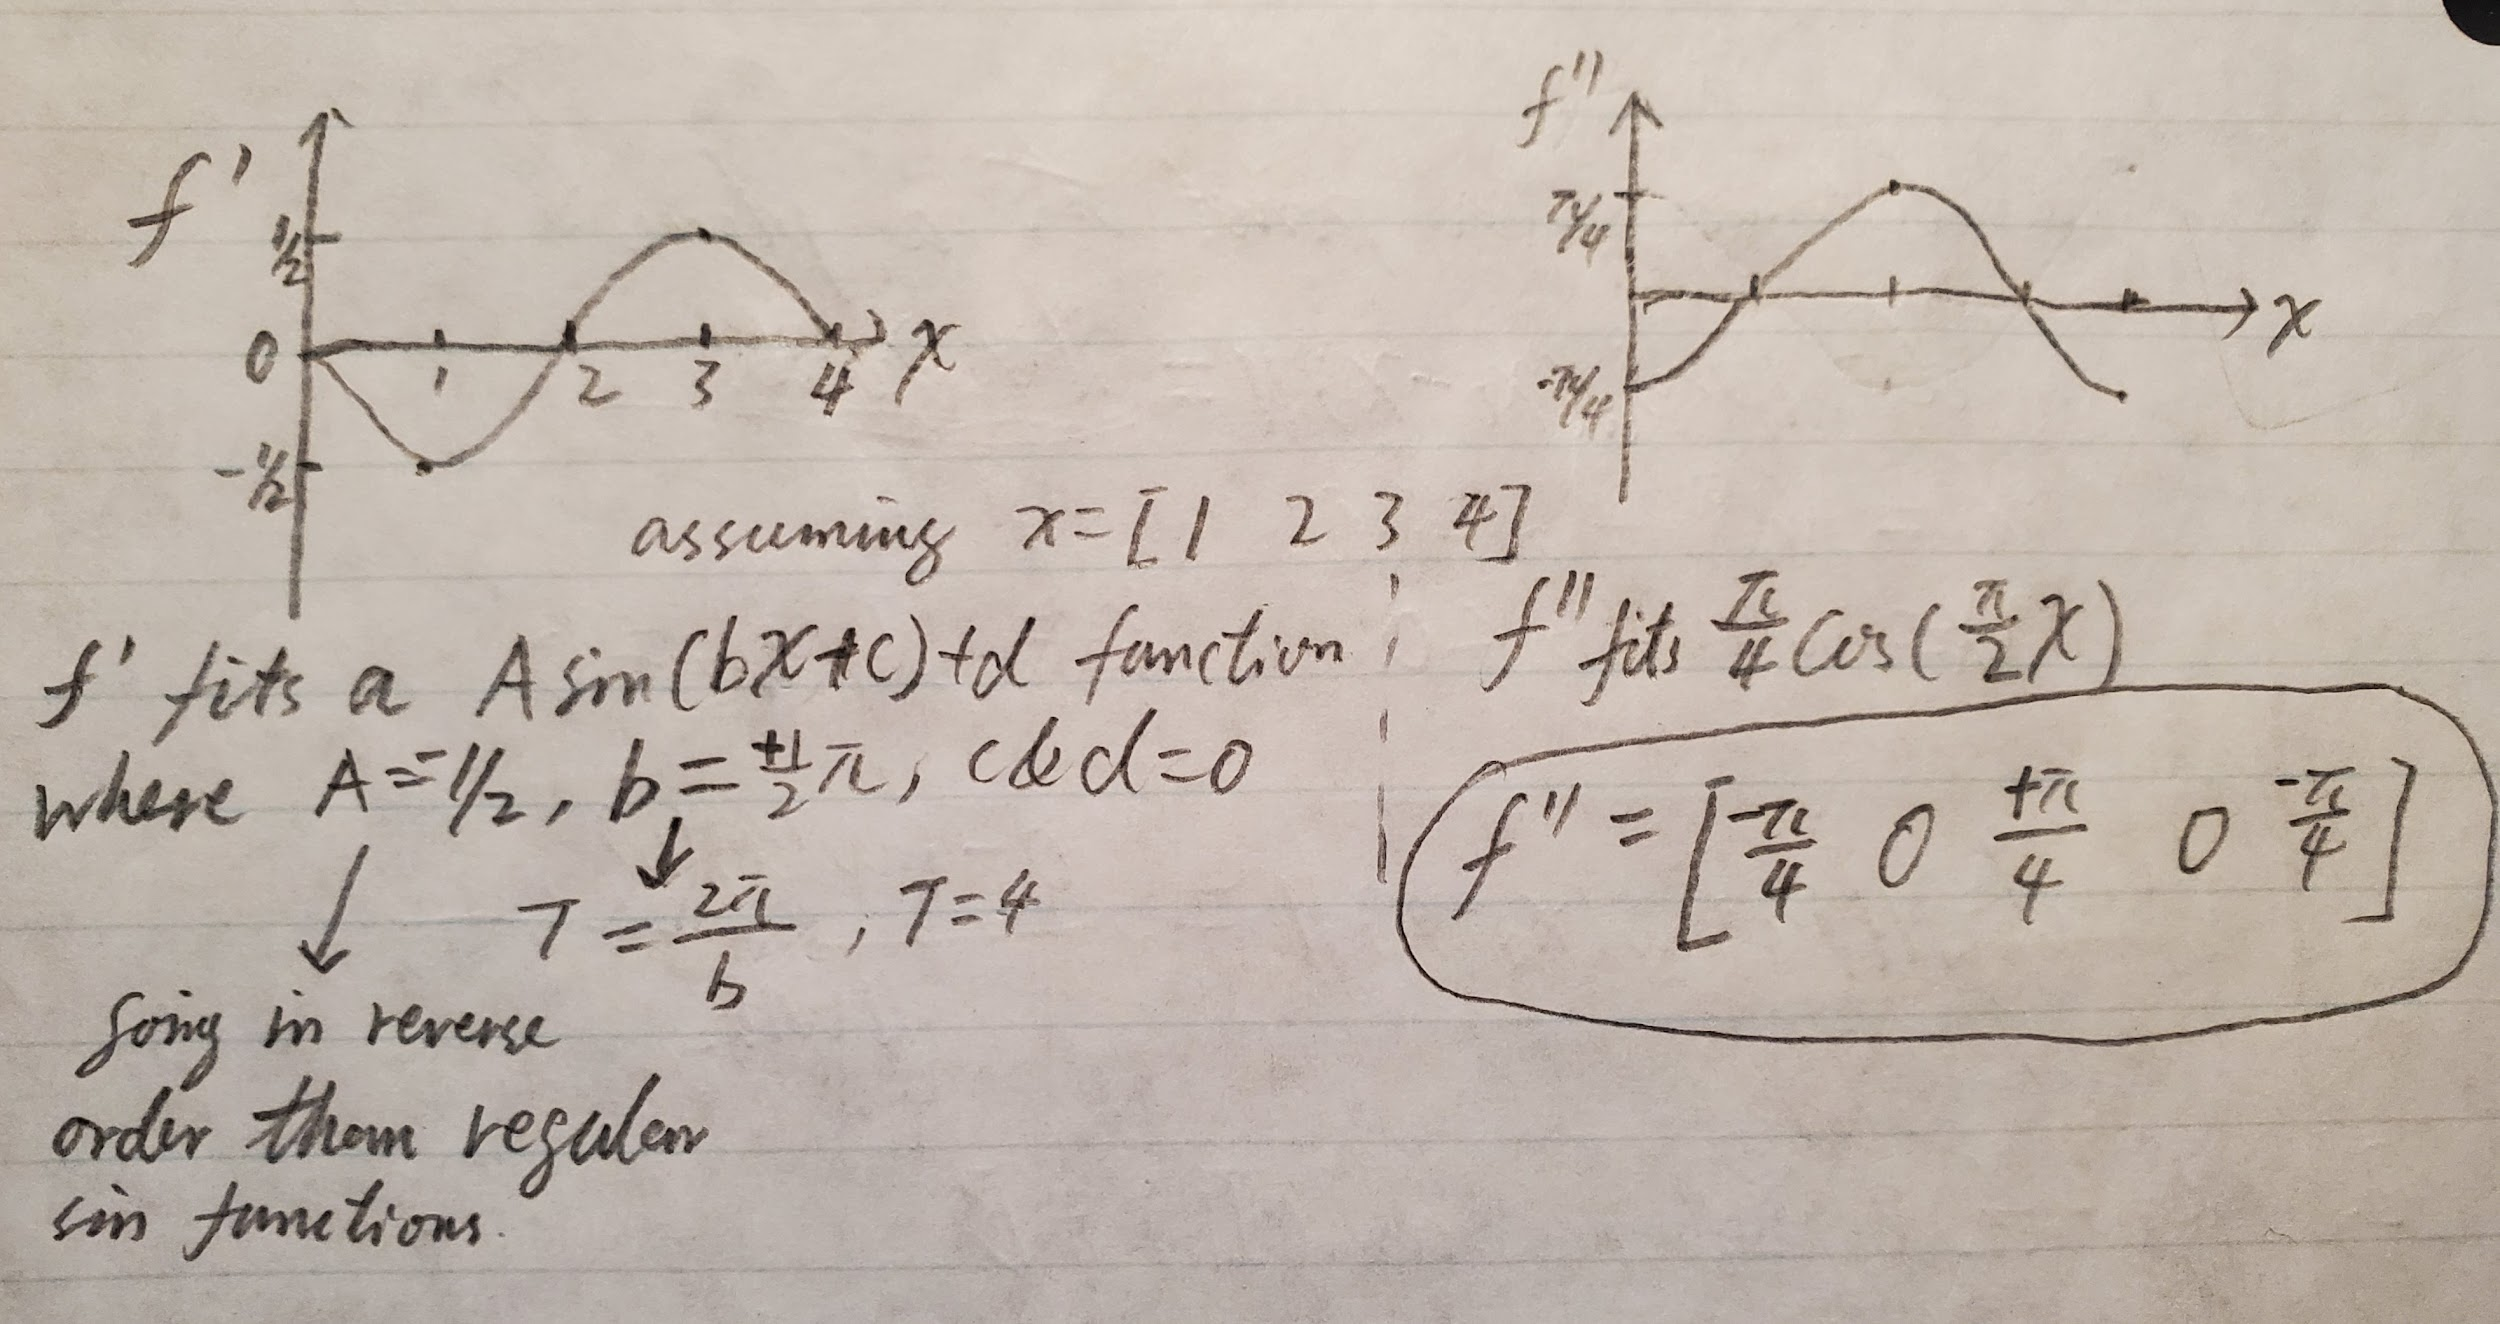 f'
1/2
0
1 2 3 4 x
-1/2
f''
π/4
x
-π/4
assuming x=[1 2 3 4]
f' fits a A sin(bx+c)+d function
where A=-1/2, b=+1/2 π, c&d=0
T=2π/b, T=4
going in reverse
order than regular
sin functions.
f'' fits π/4 Cos(π/2 x)
f''=[-π/4 0 +π/4 0 -π/4]